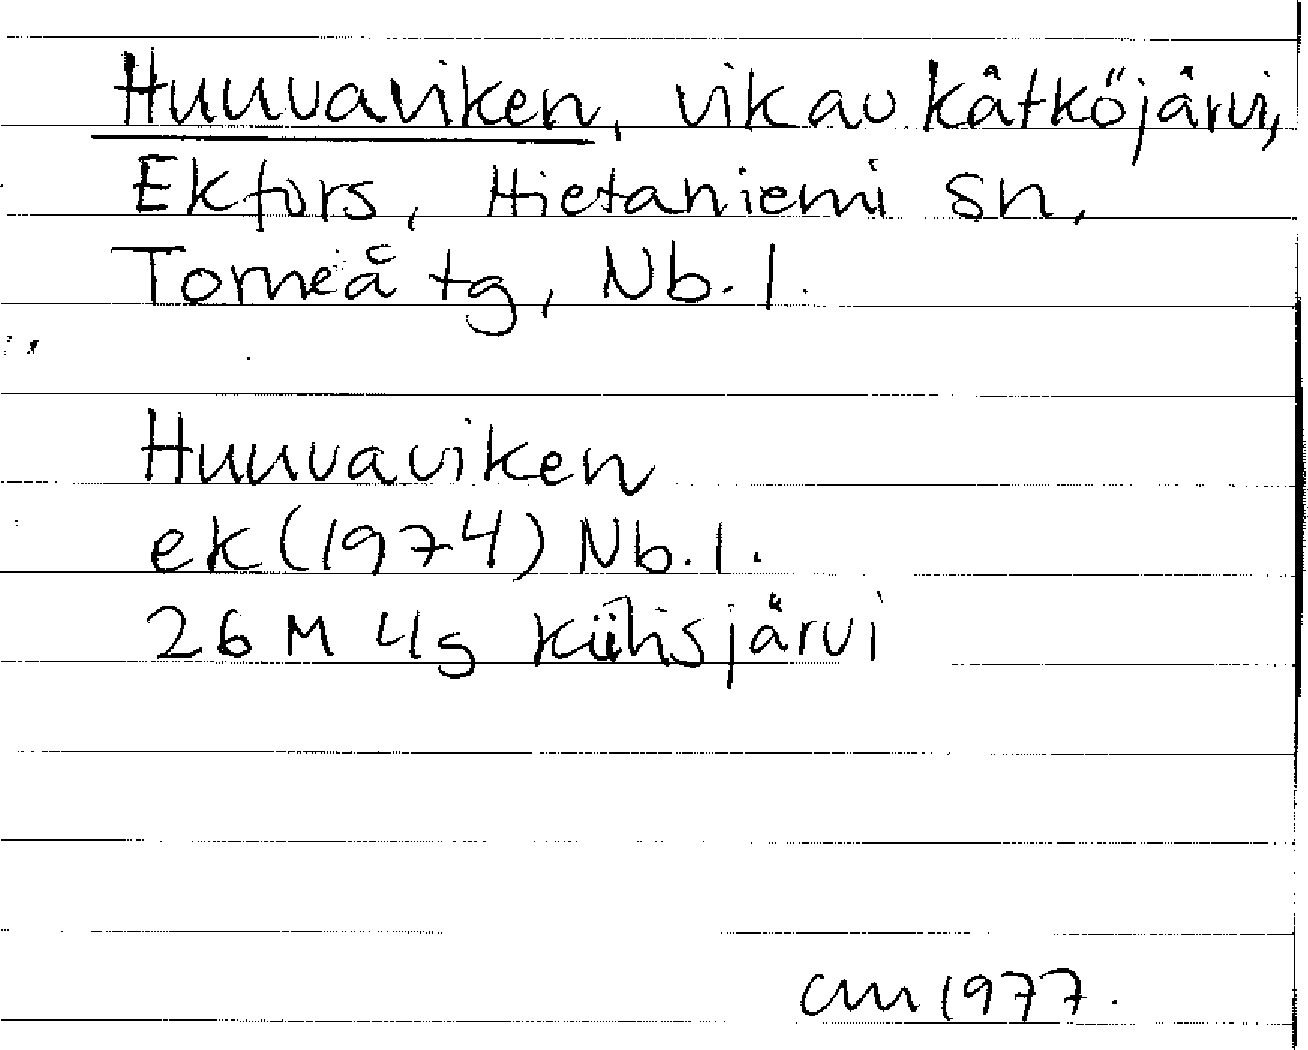 Huuvaviken, vik av Kätköjärvi,
Ekfors, Hietaniemi sn,
Torneå tg, Nb. l.
Huuvaviken
ek (1974) Nb. l.
26 M 4g
cm 1977.